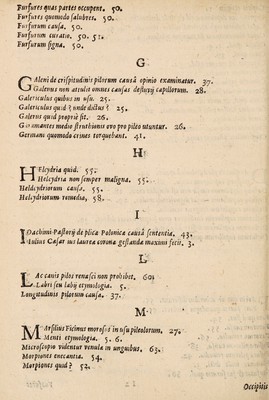 Furfures quas partes occupent. 50.
Furfures quomodo salobres. 50.
Furfurum causa. 50.
Furfurum curatio. 50. 51.
Furfurum signa. 50.
G
Galeni de crispitudinis pilorum causâ opinio examinatur. 37.
Galenus non attulit omnes causas defluvij capillorum. 28.
Galericulus quibus in usu. 25.
Galericulus quid? unde dictus? 25.
Galerus quid propriè sit. 26.
Garamantes medio struthionis ovo pro pileo utuntur. 26.
Germani quomodo crines torquebant. 41.
H
Helcydria quid. 55.
Helcydria non semper maligna. 55.
Helcydriorum causa. 55.
Helcydriorum remedia, 58.
I
Ioachimi Pastorij de plica Polonica causâ sententia. 43.
Iulius Cæsar ius laurea corona gestanda maximi fecit. 3.
L
Lac canis pilos renasci non prohibet. 60.
Labri seu labÿ etymologia. 5.
Longitudinis pilorum causa. 37.
M
Marsilius Ficinus morosus in usu pileolorum. 27.
Menti etymologia. 5. 6.
Microscopio videntur venula in unguibus. 63.
Morpiones enecantia. 54.
Morpiones quid? 52.
Occipitis